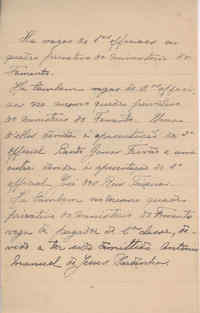 Ha vagas de 1ºs officiaes no
quadro privativo do ministerio do
Fomento.
Ha tambem vagas de 2ºs offici-
aes no mesmo quadro privativo
do ministerio do Fomento. Uma
d'ellas devida á aposentação do 2º
official Bento Gomes e uma
outra devida á aposentação do 2º
official
Ha tambem no mesmo quadro
privativo do ministerio do Fomento
vaga de Pagador de 1ª classe, de-
vido a ter sido demittido Antonio
Manuel de Jesus